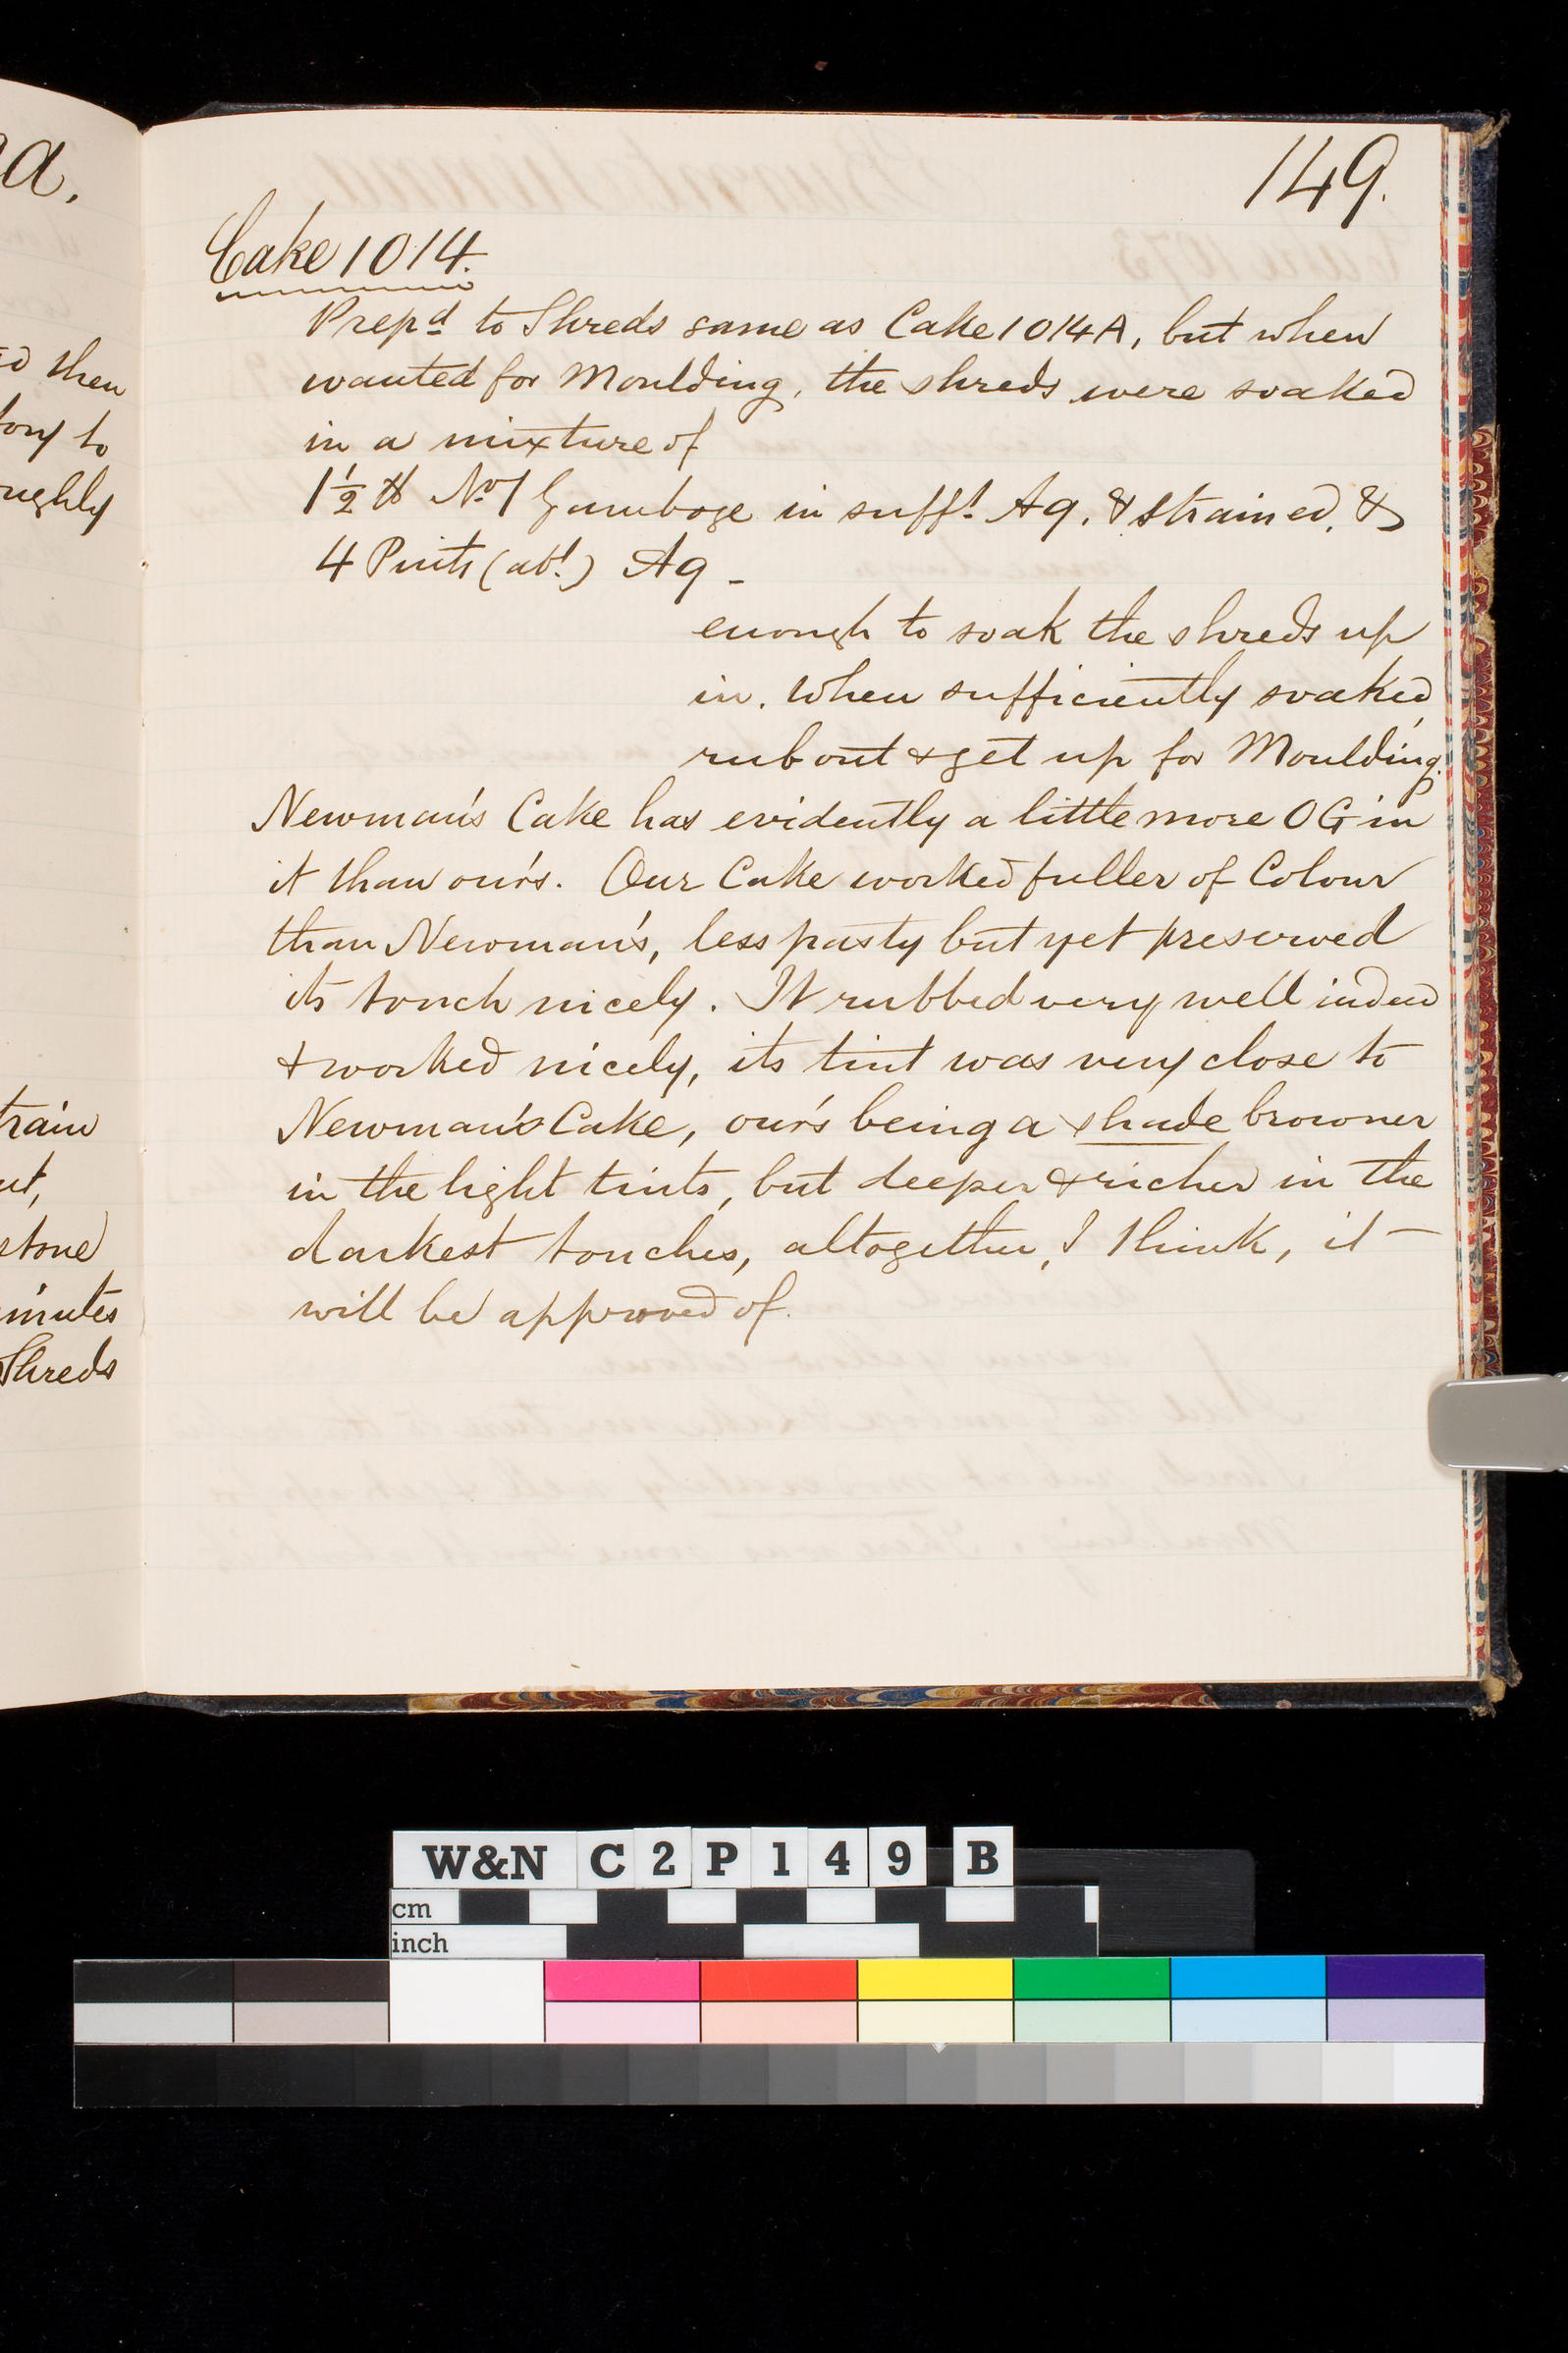 149.
Cake 1014.
Prepd to Shreds same as Cake 1014A, but when
wanted for Moulding, the shreds were soaked
in a mixture of
1½ ℔ No 1 Gamboge in sufft Aq. & strained, &
4 Pints (abt) Aq -
enough to soak the shreds up
in. When sufficiently soaked,
rub out & get up for Moulding.
Newman's Cake has evidently a little more OG in
it than our's. Our Cake worked fuller of Colour
than Newman's, less pasty but yet preserved
its touch nicely. It rubbed very well indeed
& worked nicely, its tint was very close to
Newman's Cake, our's being a shade browner
in the light tints, but deeper & richer in the
darkest touches, altogether, I think, it
will be approved of.
a.
then
to
oughly
train
stone
minutes
Shreds
W&N C2P149 B
cm
inch